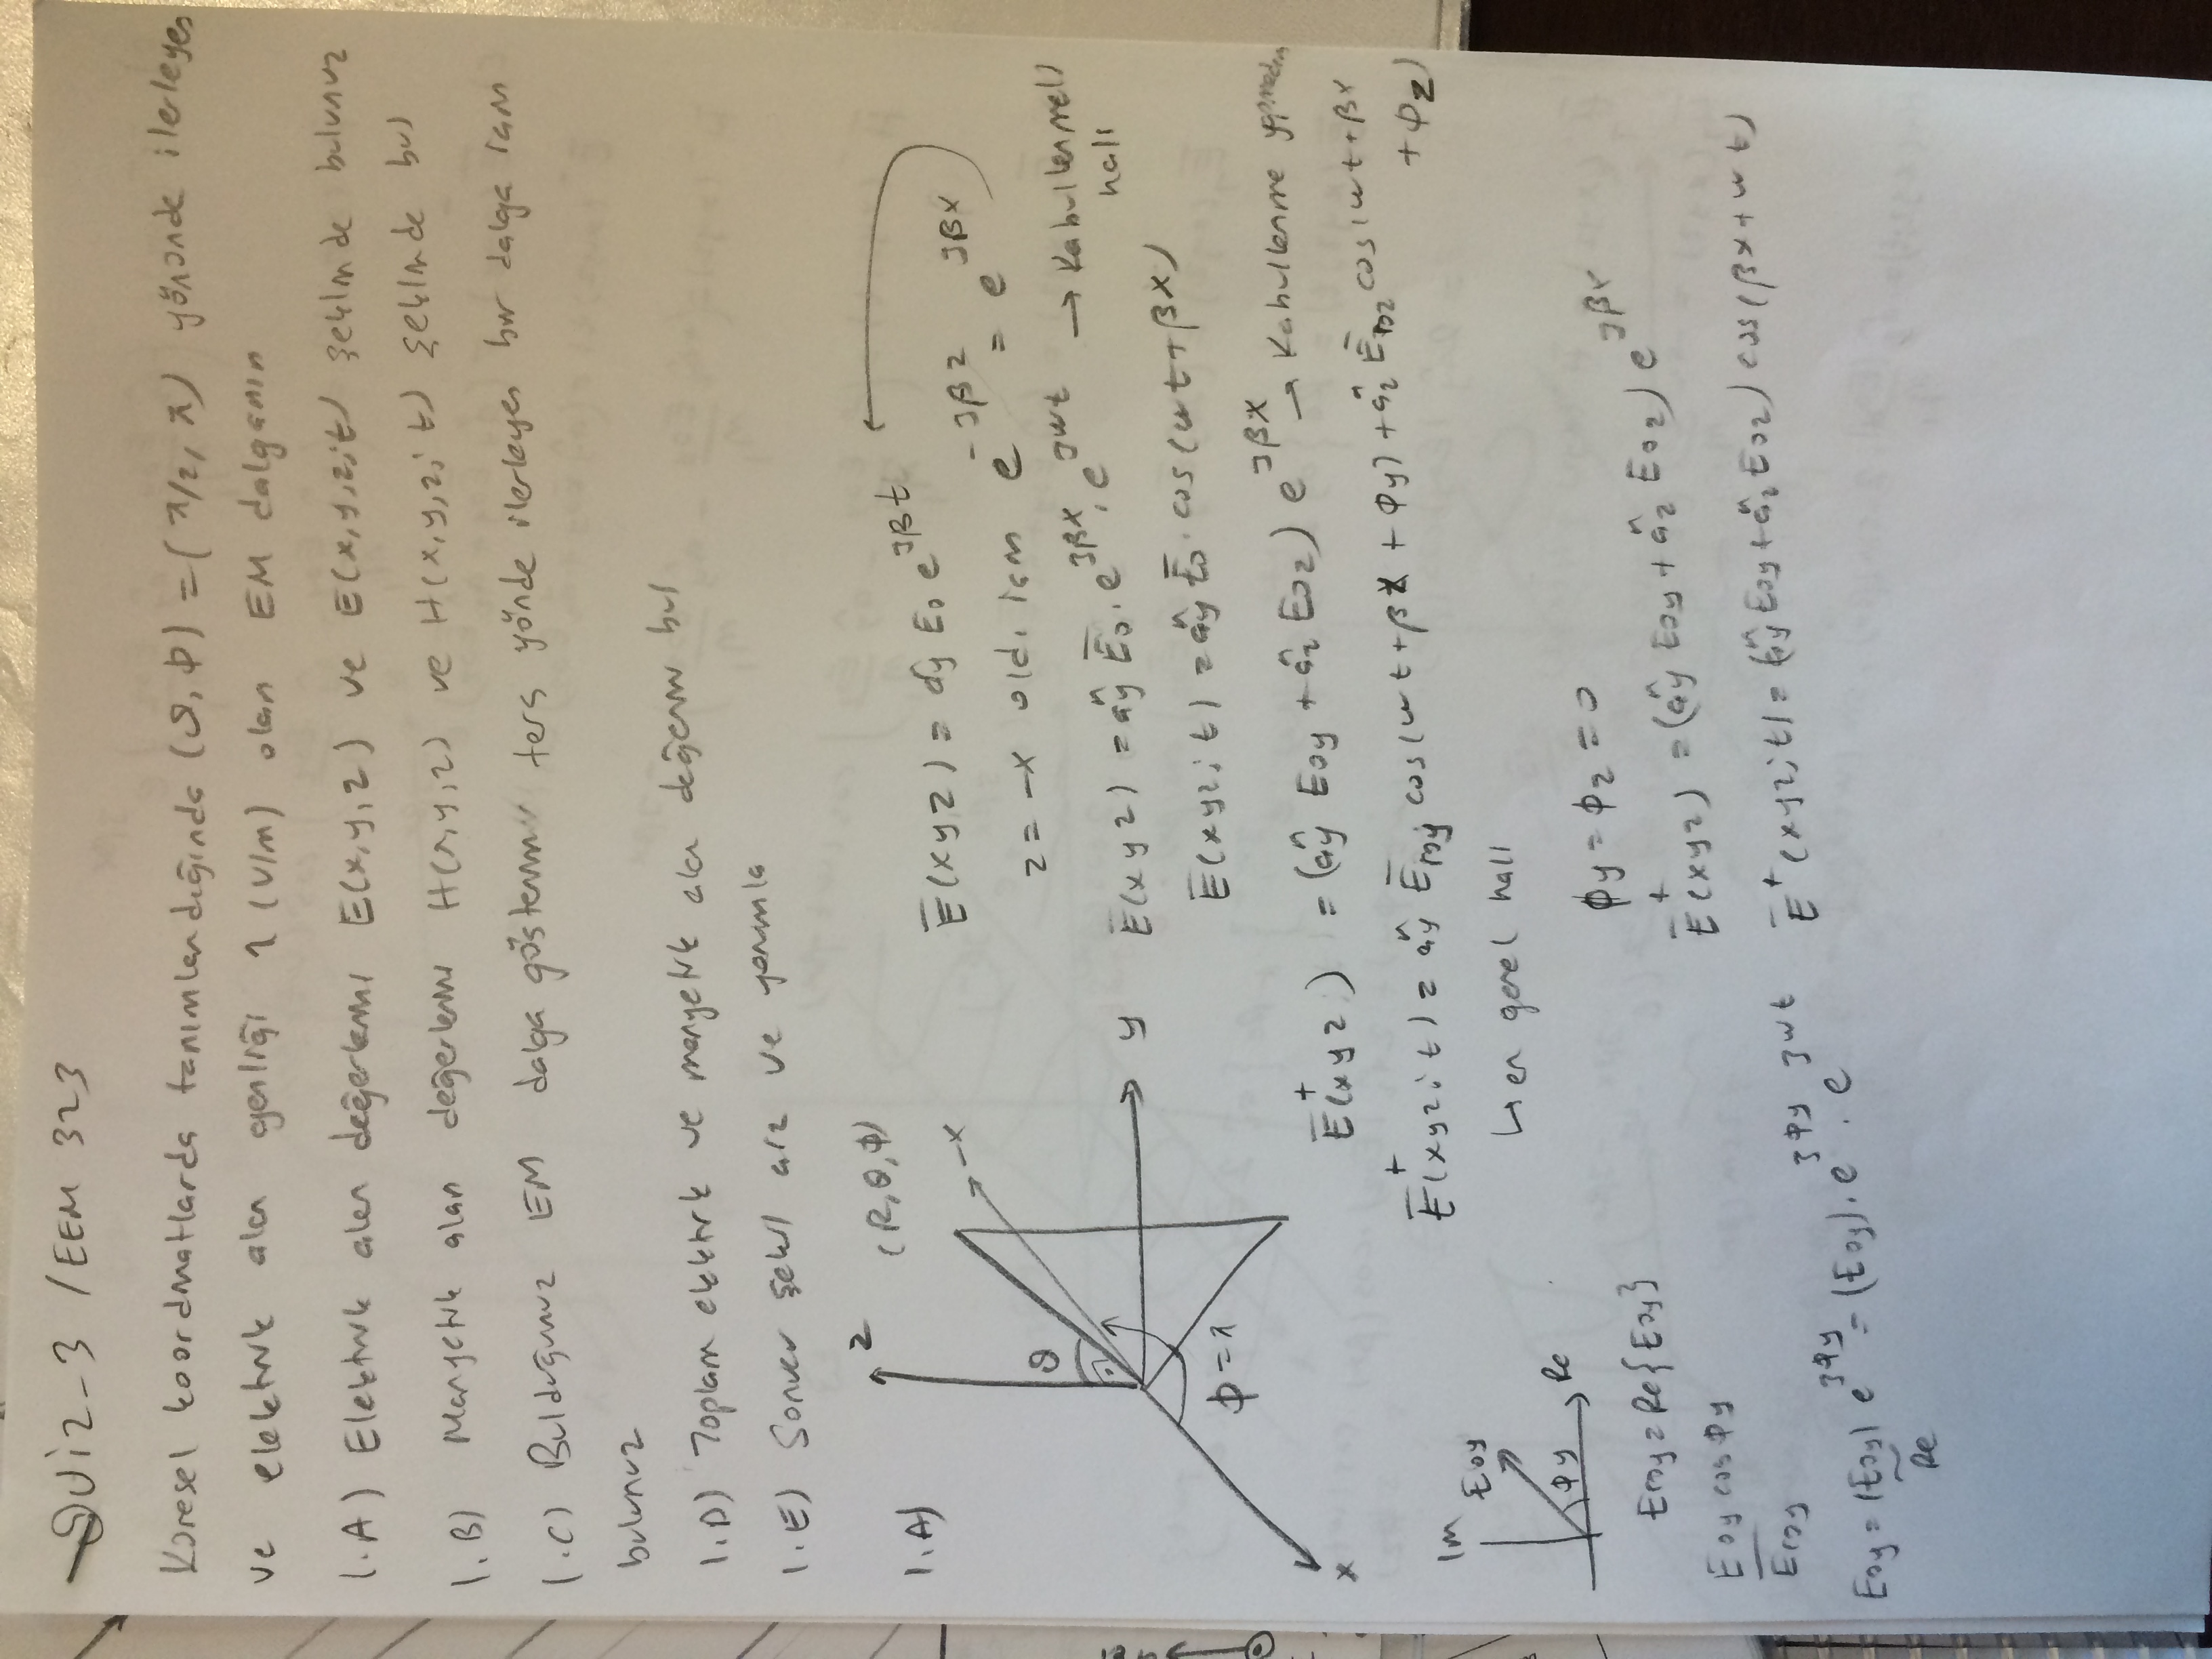 QUiz_3 / EEM 323
Küresel koordinatlarda tanımlandığında (θ, ϕ) = (π/2, π) yönünde ilerleyen
ve elektrik alan genliği 1 (V/m) olan EM dalganın
1.A) Elektrik alan değerlerini E(x,y,z) ve E(x,y,z;t) şeklinde bulunuz
1.B) Manyetik alan değerlerini H(x,y,z) ve H(x,y,z;t) şeklinde bul
1.C) Bulduğunuz EM dalga gösterimini ters yönde ilerleyen bir dalga için
bulunuz
1.D) Toplam elektrik ve manyetik alan değerini bul
1.E) Sonucu şekil çiz ve yorumla
1.A)
z
(R,θ,ϕ)
-x
θ
y
ϕ=π
x
Ē(xyz) = ây E0 e^jβt
z = -x old. için e^-jβz = e^jβx
Ē(xyz) = ây Ē0 . e^jβx . e^jwt → Kabullenmeli
hali
Ē(xyz;t) = ây Ē0 . cos(wt+βx)
Ē^+(xyz) = (ây E0y + âz E0z) e^jβx → Kabullenme yapmadan
Ē^+(xyz;t) = ây Ēr0y cos(wt+βx+ϕy) + âz Ēr0z cos(wt+βx
+ϕz)
↳ en genel hali
Im
E0y
ϕy
Re
Er0y = Re{E0y}
E0y cosϕy
Er0y
E0y = |E0y| e^jϕy = (E0y) . e^jϕy . e^jwt
Re
ϕy = ϕz = 0
Ē^+(xyz) = (ây E0y + âz E0z) e^jβx
Ē^+(xyz;t) = (ây E0y + âz E0z) cos(βx+wt)